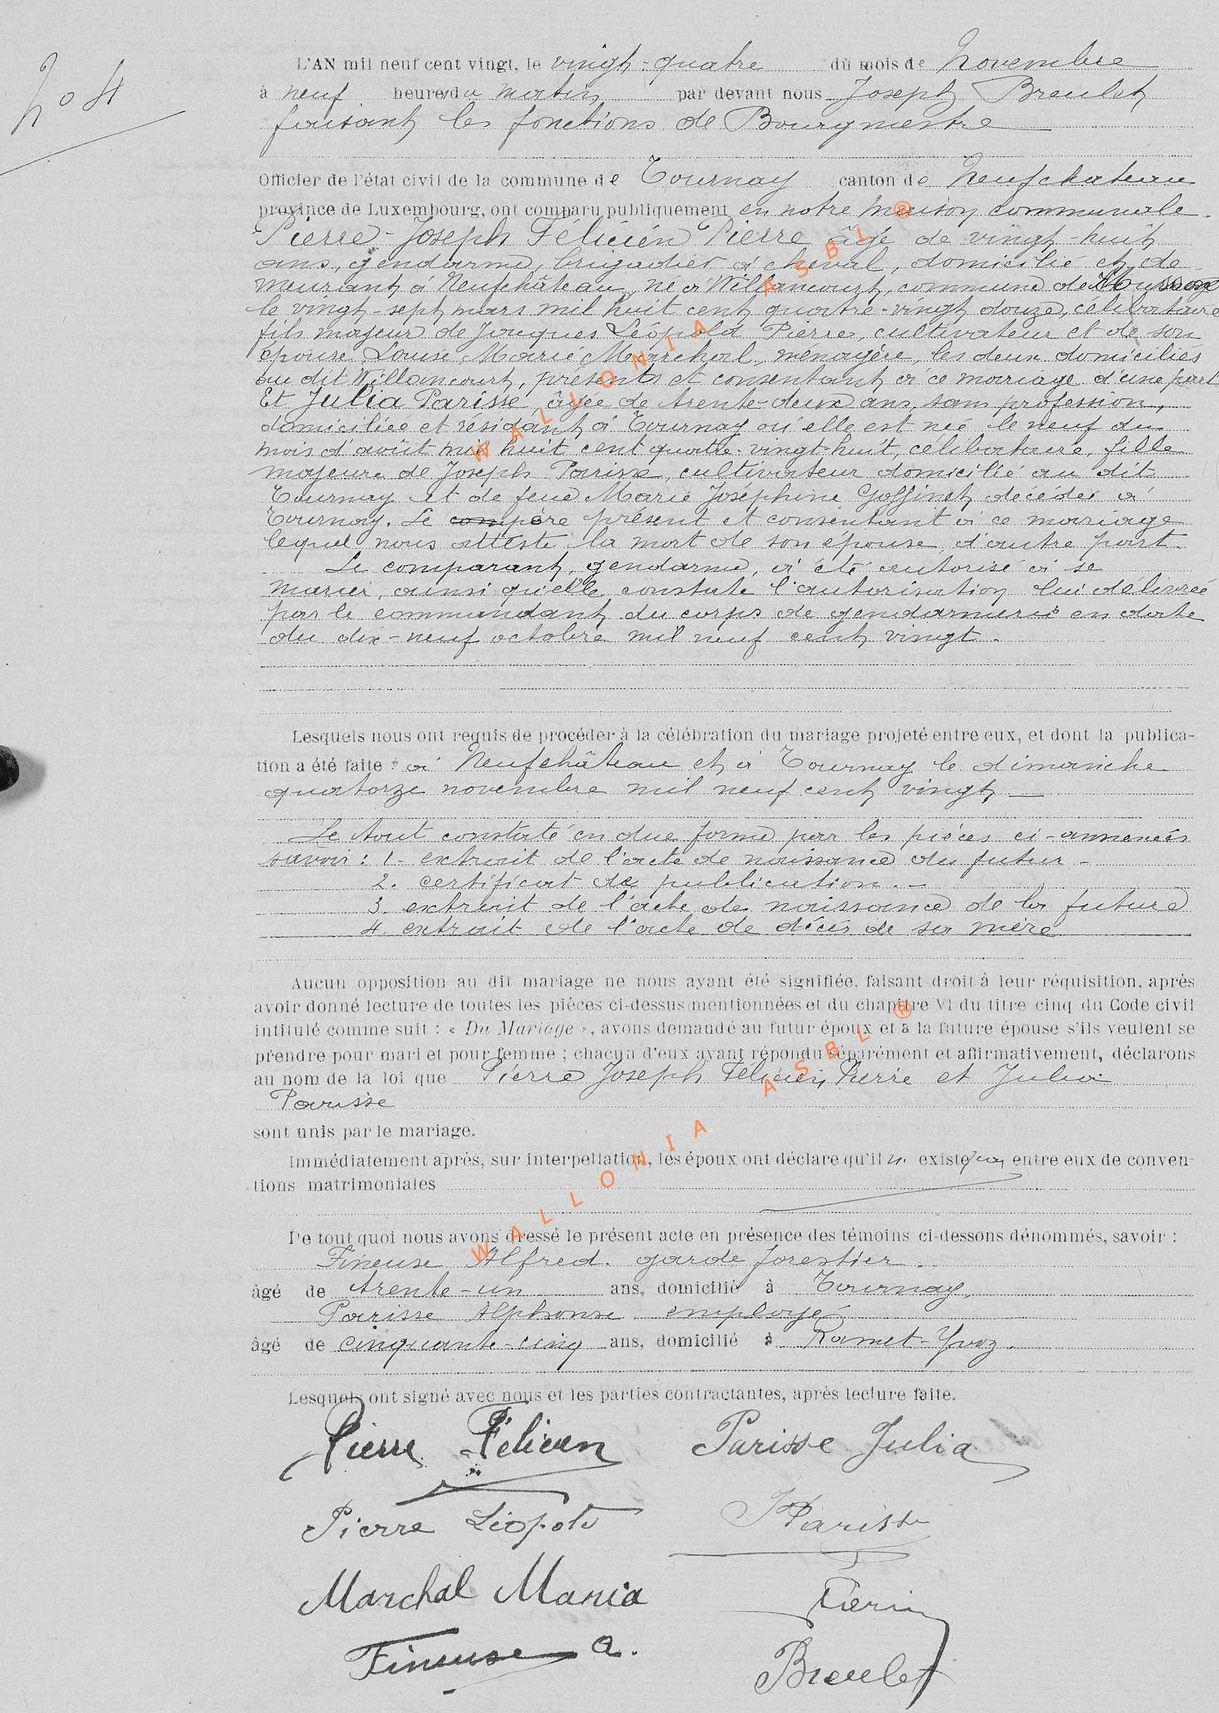 No 4
L'AN mil neuf cent vingt, le vingt-quatre du mois de Novembre
à neuf heures du matin par devant nous Joseph Breulet
faisant les fonctions de Bourgmestre
Officier de l'état civil de la commune de Tournay canton de Neufchateau
province de Luxembourg, ont comparu publiquement en notre maison communale.
Pierre-Joseph Félicien Pierre âgé de vingt-huit
ans, gendarme, brigadier à cheval, domicilié et de-
meurant à Neufchâteau, né à Willancourt, commune de Musson
le vingt-sept mars mil huit cent quatre-vingt douze, célibataire
fils majeur de Jacques Léopold Pierre, cultivateur et de son
épouse Louise Marie Marechal, ménagère, les deux domiciliés
au dit Willancourt, présents et consentant à ce mariage d'une part
Et Julia Parisse, âgée de trente-deux ans, sans profession,
domiciliée et résidant à Tournay où elle est née le neuf du
mois d'août mil huit cent quatre-vingt-huit, célibataire, fille
majeure de Joseph Parisse, cultivateur domicilié au dit
Tournay et de feue Marie Joséphine Goffinet décédée à
Tournay. Le com père présent et consentant à ce mariage
lequel nous atteste la mort de son épouse, d'autre part.
Le comparant, gendarme, a été autorisé à se
marier, ainsi qu'elle constate l'autorisation lui délivrée
par le commandant du corps de gendarmerie en date
du dix-neuf octobre mil neuf cent vingt.
Lesquels nous ont requis de procéder à la célébration du mariage projeté entre eux, et dont la publica-
tion a été faite : à Neufchâteau et à Tournay le dimanche
quatorze novembre mil neuf cent vingt —
Le tout constaté en due forme par les pièces ci-annexées
savoir : 1. extrait de l'acte de naissance du futur -
2. certificat de publication. -
3. extrait de l'acte de naissance de la future
4. extrait de l'acte de décès de sa mère
Aucun opposition au dit mariage ne nous ayant été signifiée, faisant droit à leur réquisition, après
avoir donné lecture de toutes les pièces ci-dessus mentionnées et du chapitre VI du titre cinq du Code civil
intitulé comme suit : « Du Mariage », avons demandé au futur époux et à la future épouse s'ils veulent se
prendre pour mari et pour femme ; chacun d'eux ayant répondu séparément et affirmativement, déclarons
au nom de la loi que Pierre Joseph Félicien Pierre et Julia
Parisse
sont unis par le mariage.
Immédiatement après, sur interpellation, les époux ont déclare qu'il n'existe pas entre eux de conven-
tions matrimoniales
De tout quoi nous avons dressé le présent acte en présence des témoins ci-dessons dénommés, savoir :
Fineuse Alfred. garde forestier.
âgé de trente-un ans, domicilié à Tournay,
Parisse Alphonse employé
âgé de cinquante-cinq ans, domicilié à Ramet-Yvoz.
Lesquels ont signé avec nous et les parties contractantes, après lecture faite.
Pierre Félicien Parisse Julia
Pierre Léopold J Parisse
Marchal Maria
Fineuse A. Breulet
WALLONIA ASBL ®
WALLONIA ASBL ®